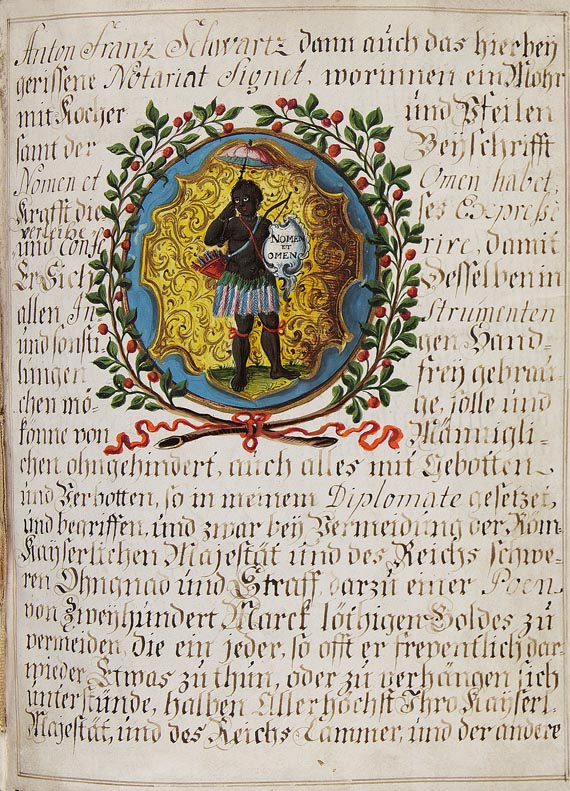 Anton Franz Schwartz dann auch das hierbey
gerissene Notariat Signet, worinnen ein Mohr
mit Kocher und Pfeilen
samt der Beyschrifft
Nomen et Omen habet,
Krafft dieses Expresse
verleihe
und conferire, damit
Er Sich Desselben in
allen Instrumenten
und sonstigen Hand-
lungen frey gebrau-
chen mö- ge, solle und
könne von Männigli-
NOMEN
ET
OMEN
chen ohngehindert, auch alles mit Gebotten
und Verbotten, so in meinem Diplomate gesetzet,
und begriffen, und zwar bey Vermeidung der Röm
Kayserlichen Majestät und des Reichs schwe-
ren Ohngnad und Straff, darzu einer Poen
von Zweyhundert Marck löthigen Goldes zu
vermeiden, die ein jeder, so offt er freventlich dar-
wieder Etwas zu thun, oder zu verhängen sich
unterstünde, halben Allerhöchst Ihro Kayserl.
Majestät, und des Reichs Cammer, und der andere